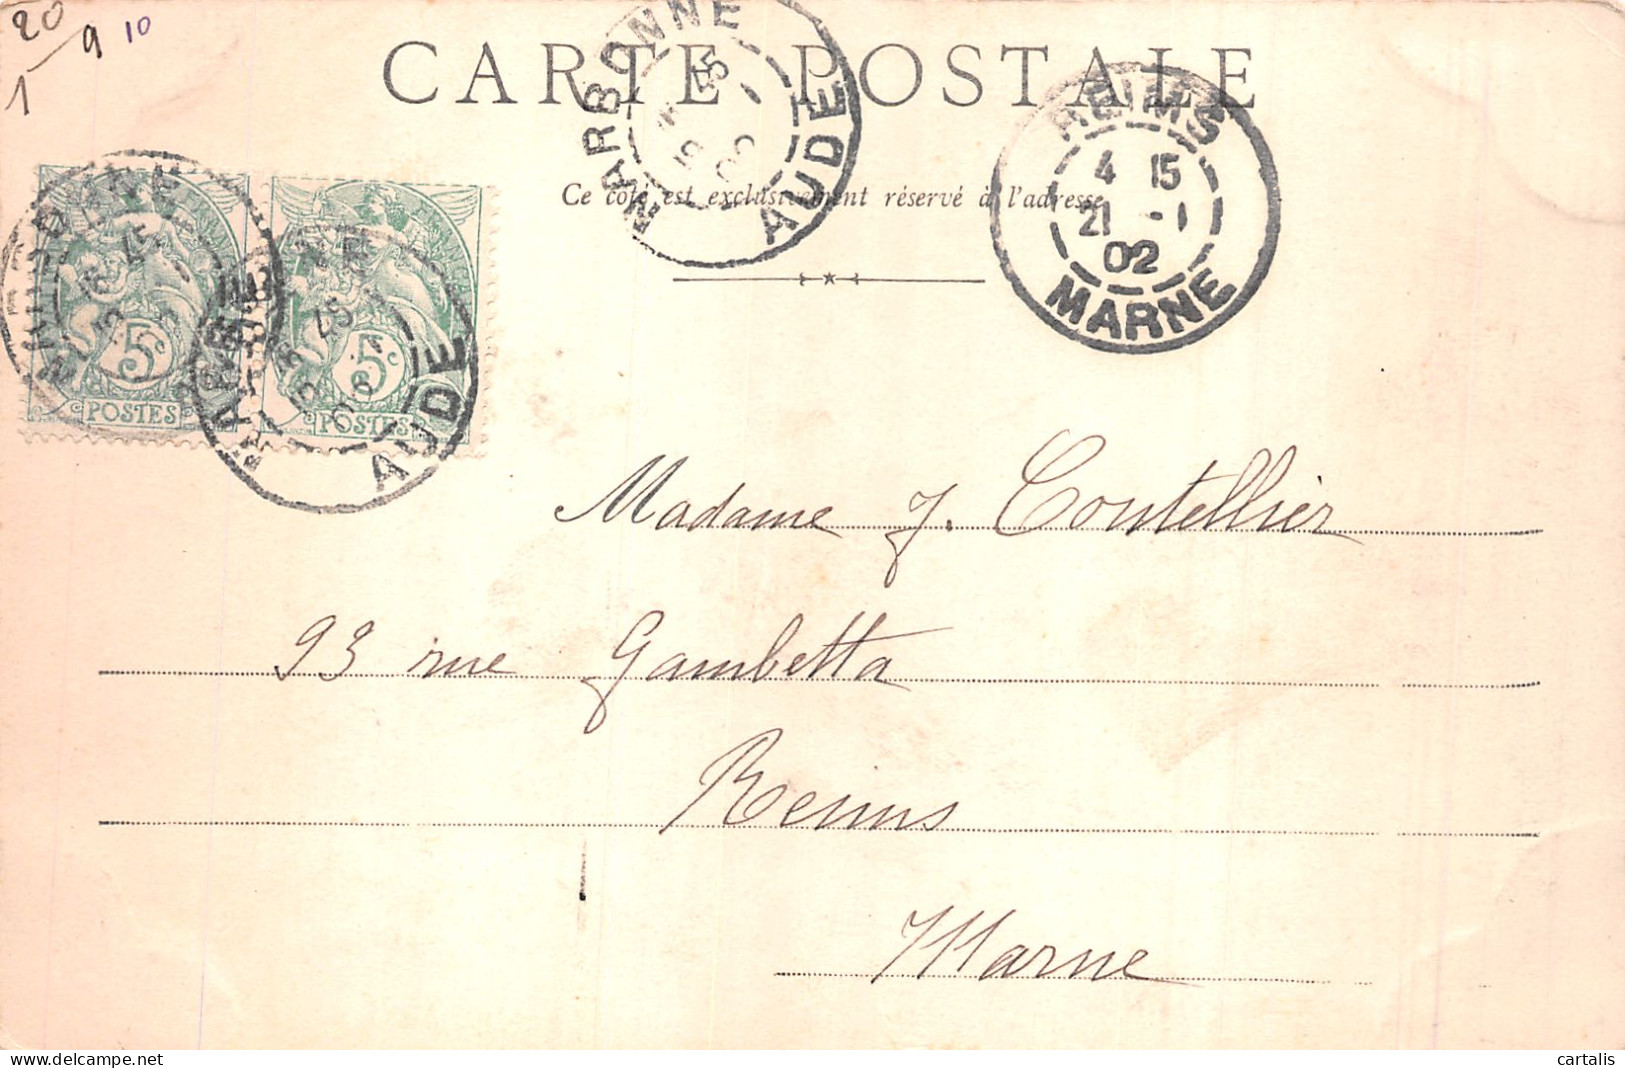 20/1 9 10
CARTE POSTALE
Ce côté est exclusivement réservé à l'adresse
NARBONNE
AUDE
REIMS
4 15
21 -1
02
MARNE
5c
POSTES
5c
POSTES
AUDE
Madame J. Coutellier
93 rue Gambetta
Reims
Marne
cartalis